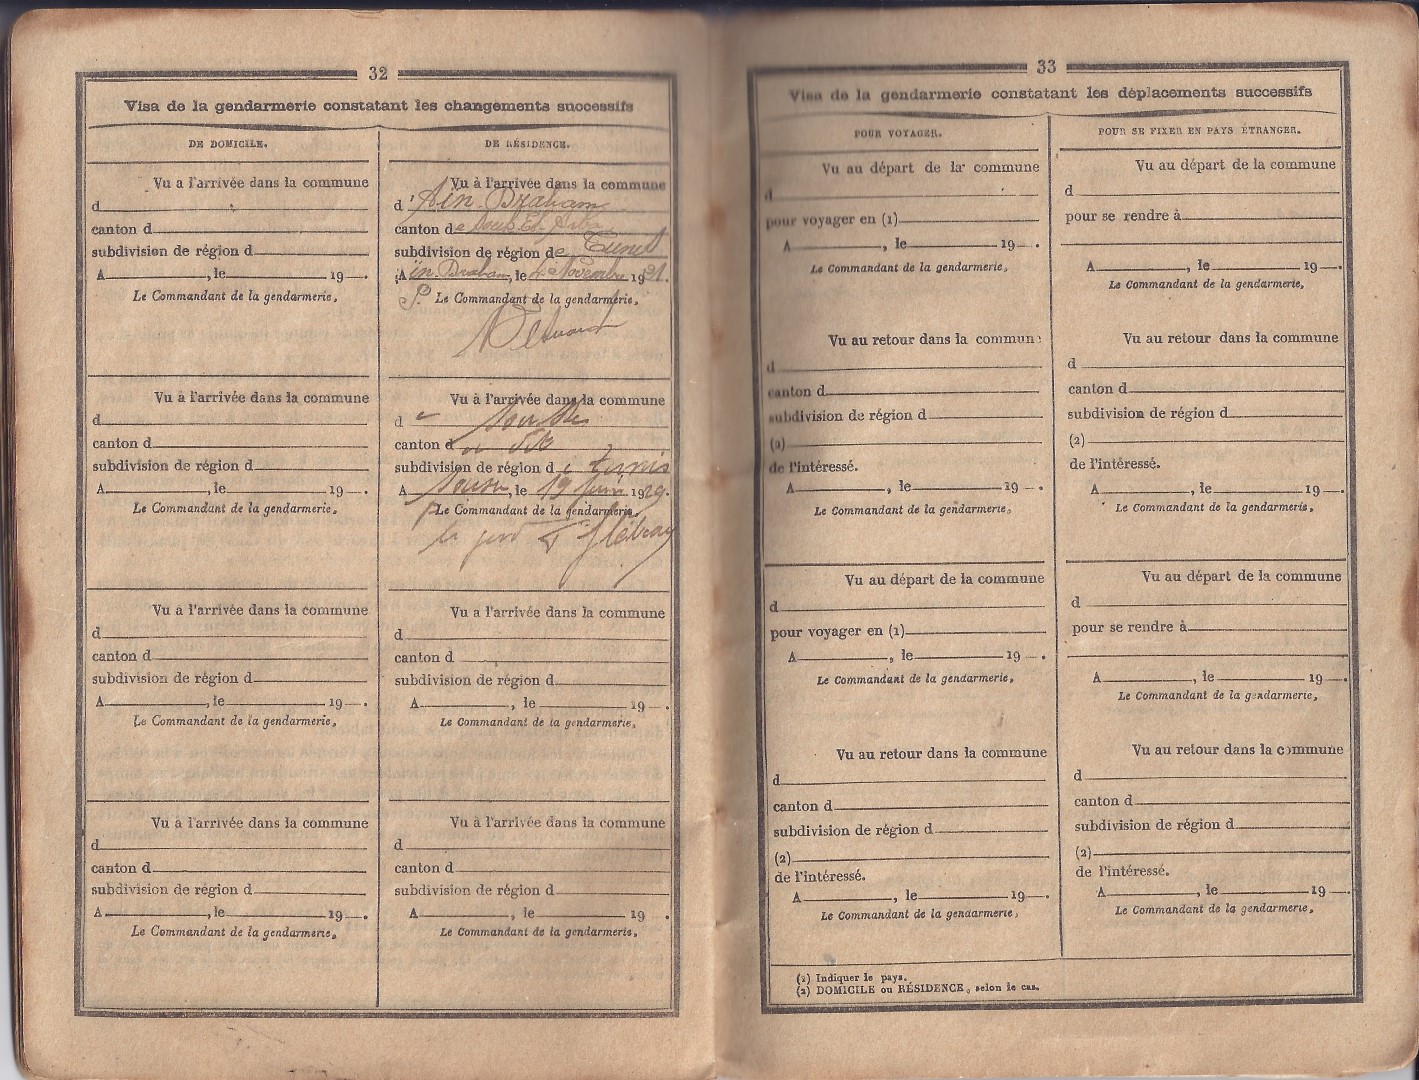 32
Visa de la gendarmerie constatant les changements successifs
DE DOMICILE.
Vu a l'arrivée dans la commune
d
canton d
subdivision de région d
A , le 19 .
Le Commandant de la gendarmerie,
Vu à l'arrivée dans la commune
d
canton d
subdivision de région d
A , le 19 .
Le Commandant de la gendarmerie,
Vu a l'arrivée dans la commune
d
canton d
subdivision de région d
A , le 19 .
Le Commandant de la gendarmerie,
Vu à l'arrivée dans la commune
d
canton d
subdivision de région d
A , le 19 .
Le Commandant de la gendarmerie,
DE RÉSIDENCE.
Vu à l'arrivée dans la commune
d'Aïn-Draham
canton de Souk-El-Arba
subdivision de région de Tunis
Aïn-Draham, le 4 Novembre 1921.
P. Le Commandant de la gendarmerie,
Vu à l'arrivée dans la commune
d Sousse
canton d
subdivision de région d Tunis
A Sousse, le 19 Juin 1929.
Le Commandant de la gendarmerie,
le
Vu a l'arrivée dans la commune
d
canton d
subdivision de région d
A , le 19 .
Le Commandant de la gendarmerie,
Vu à l'arrivée dans la commune
d
canton d
subdivision de région d
A , le 19 .
Le Commandant de la gendarmerie,
33
Visa de la gendarmerie constatant les déplacements successifs
POUR VOYAGER.
Vu au départ de la commune
d
pour voyager en (1)
A , le 19 .
Le Commandant de la gendarmerie,
Vu au retour dans la commune
d
canton d
subdivision de région d
(2)
de l'intéressé.
A , le 19 .
Le Commandant de la gendarmerie,
Vu au départ de la commune
d
pour voyager en (1)
A , le 19 .
Le Commandant de la gendarmerie,
Vu au retour dans la commune
d
canton d
subdivision de région d
(2)
de l'intéressé.
A , le 19 .
Le Commandant de la gendarmerie,
POUR SE FIXER EN PAYS ÉTRANGER.
Vu au départ de la commune
d
pour se rendre à
A , le 19 .
Le Commandant de la gendarmerie,
Vu au retour dans la commune
d
canton d
subdivision de région d
(2)
de l'intéressé.
A , le 19 .
Le Commandant de la gendarmerie,
Vu au départ de la commune
d
pour se rendre à
A , le 19 .
Le Commandant de la gendarmerie,
Vu au retour dans la commune
d
canton d
subdivision de région d
(2)
de l'intéressé.
A , le 19 .
Le Commandant de la gendarmerie,
(1) Indiquer le pays.
(2) DOMICILE ou RÉSIDENCE, selon le cas.